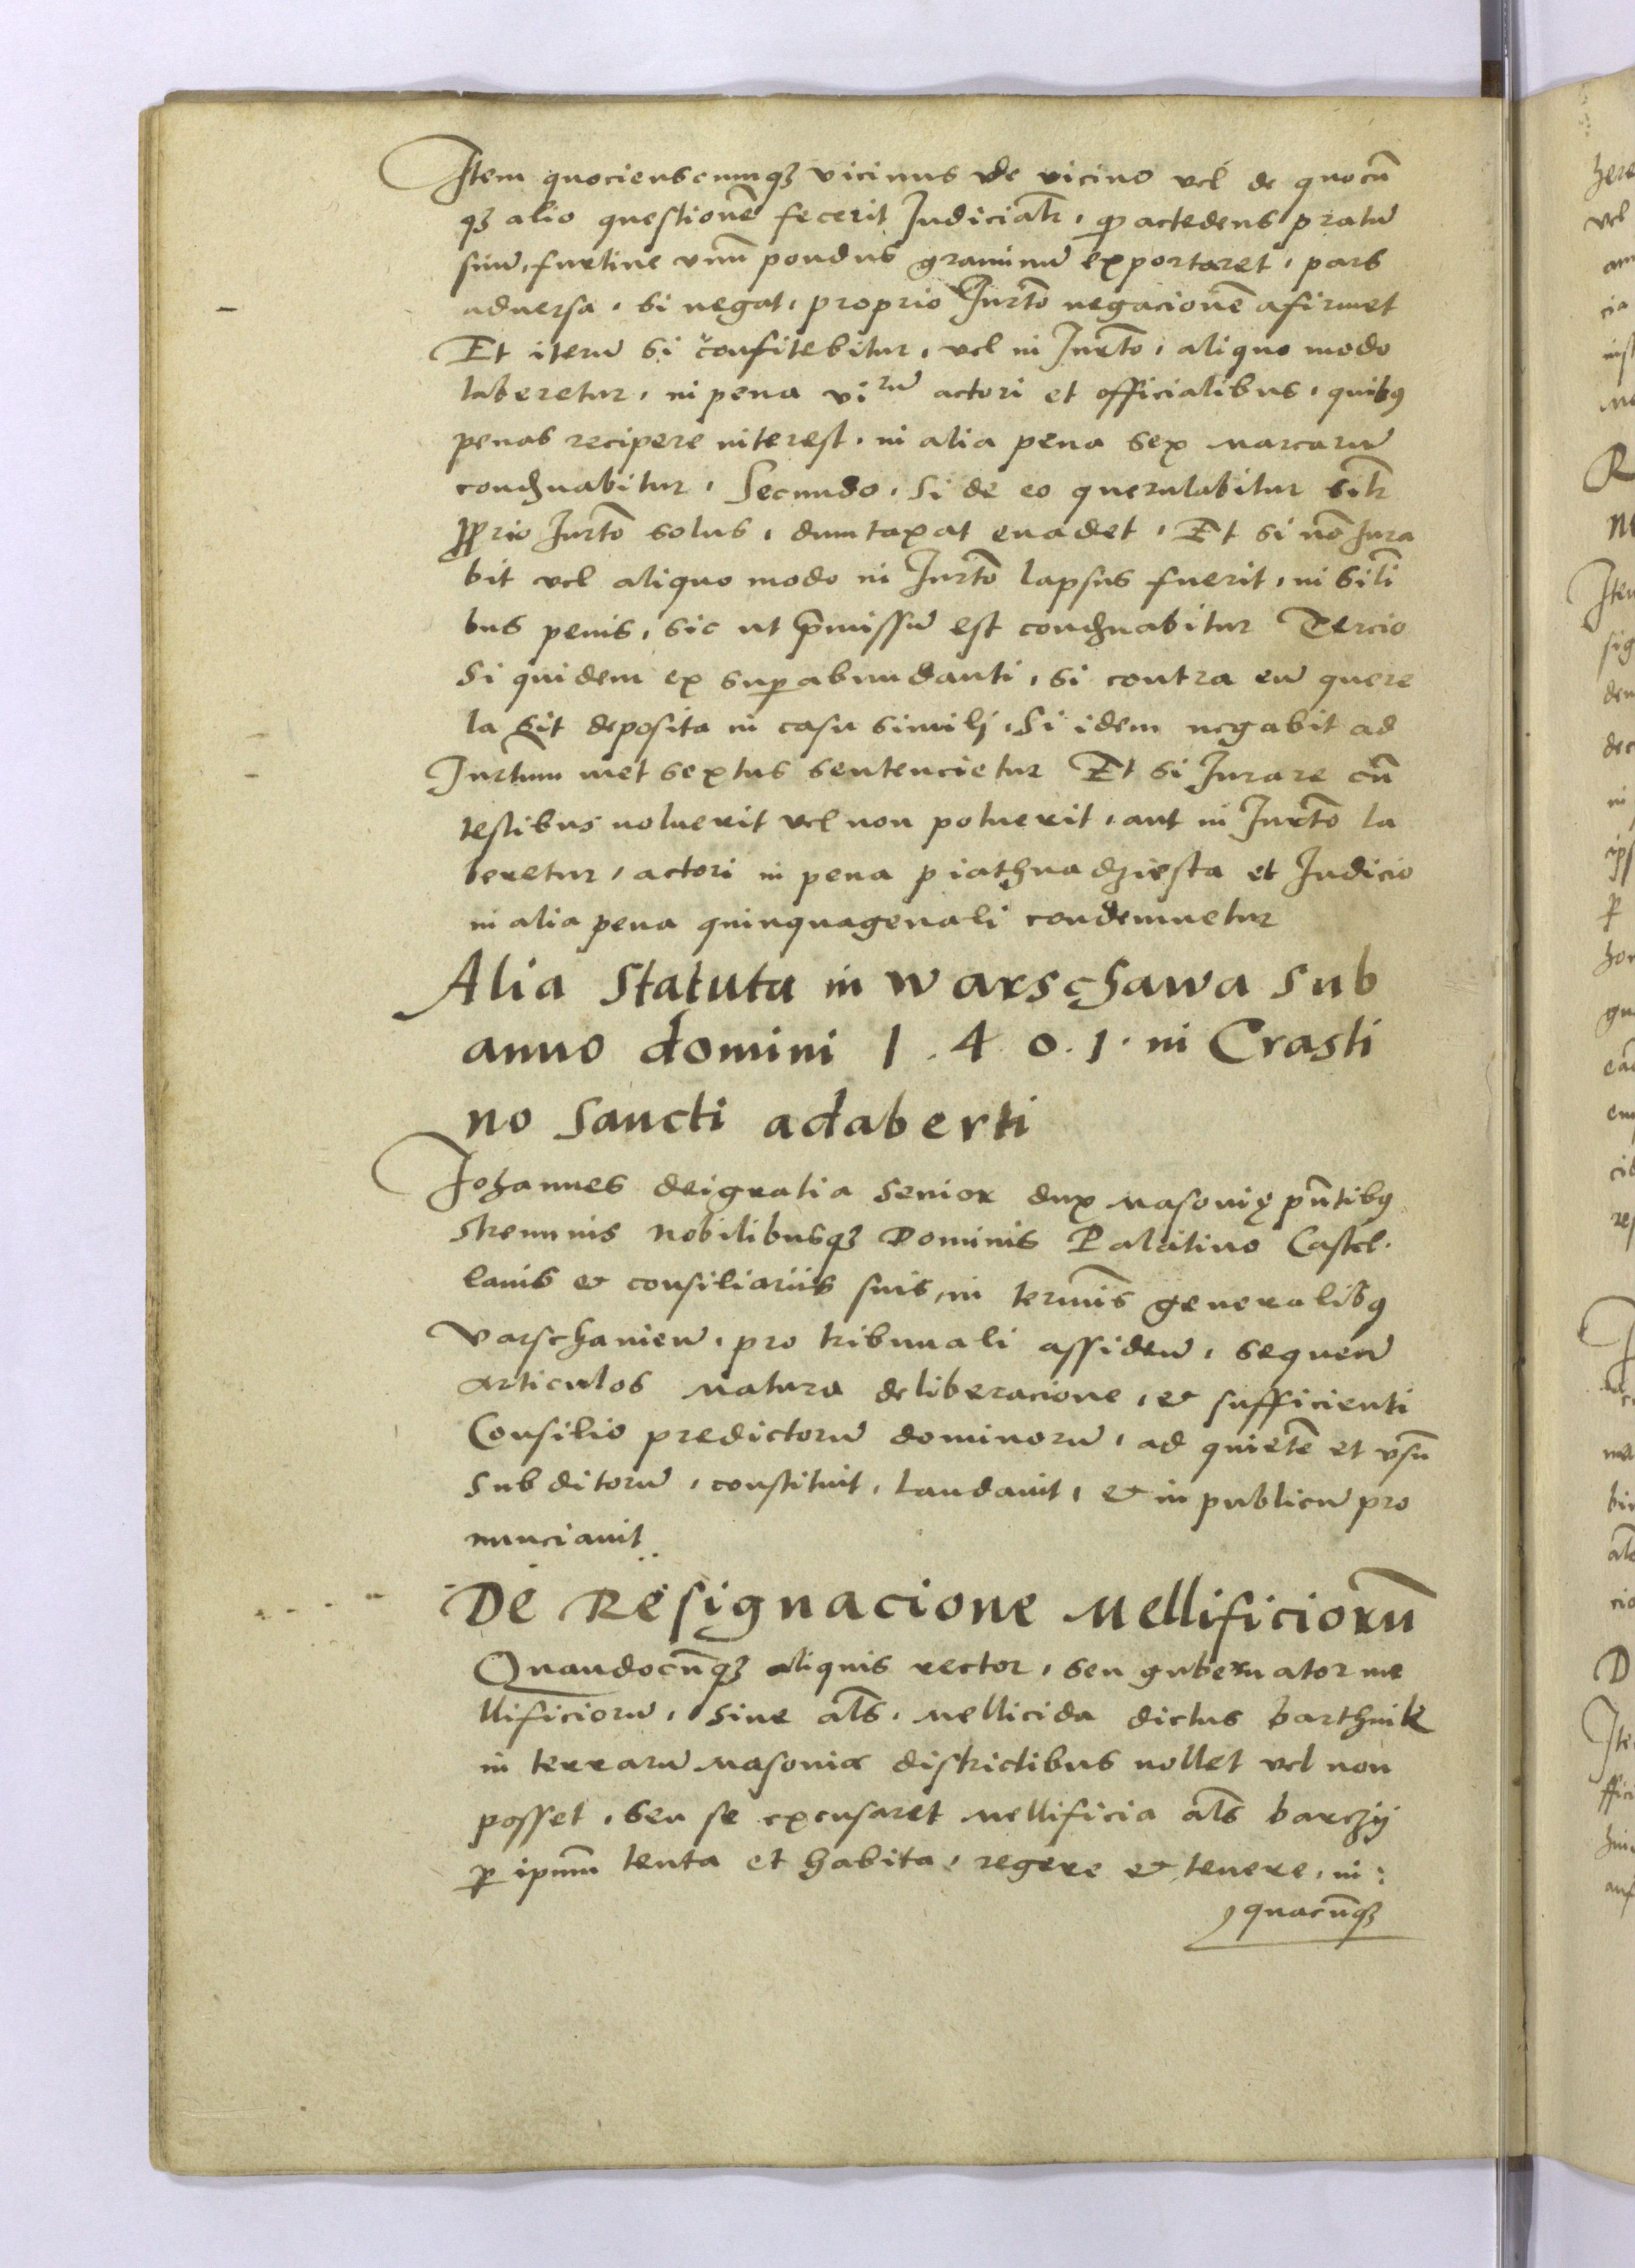 Item quocienscumqȝ vicinus de vicino vel de quocū
qȝ alio questionē fecerit Judicialr̄, ꝙ actedens pratū
suū, furtiue vnū pondus graminū exportaret, pars
aduersa, si negat, proprio Jurto negacionē afirmet
Et iterū si confitebitur, vel in Jurto, aliquo modo
laberetur, in pena viʳᵘ actori et officialibus, quibꝫ
penas recipere interest, in alia pena sex marcarū
condnabitur, Secundo, Si de eo querulabitur silr̄
ꝓprio Jurto solus, dumtaxat euadet, Et si nō Jura
bit vel aliquo modo in Jurto lapsus fuerit, in sili
bus penis, sic ut p̄missū est condnabitur Tercio
Si quidem ex suꝑabundanti, si contra eū quere
la sit deposita in casu simili, Si idem negabit ad
Jurtum met sextus sentencietur Et si Jurare cū
testibus noluerit vel non potuerit, aut in Jurto la
beretur, actori in pena piathnadziesta et Judicio
in alia pena quinquagenali condemnetur
Alia Statuta in Warschawa sub
anno domini 1.4.0.1. in Crasti
no Sancti adaberti
Johannes dei gratia Senior dux Masouię pn̄tibꝫ
strenuis Nobilibusqȝ Dominis Palatino Castel.
lanis et consiliariis suis, in termis generalibꝫ
Varschauien̄, pro tribunali assiden̄, sequen̄
articulos Matura deliberacione, et sufficienti
Consilio predictorū dominorū, ad quietē et vsū
subditorū, constituit, Laudauit, et in publicū pro
nunciauit
De Resignacione Mellificiorū
Quandocūqȝ aliquis rector, seu gubernator me
llificiorū, Siue als, mellicida dictus barthnik
in terrarū Masouiæ districtibus nollet vel non
posset, Seu se excusaret Mellificia als barczy
ꝑ ipnm tenta et habita, regere et tenere, in:
quacūqȝ